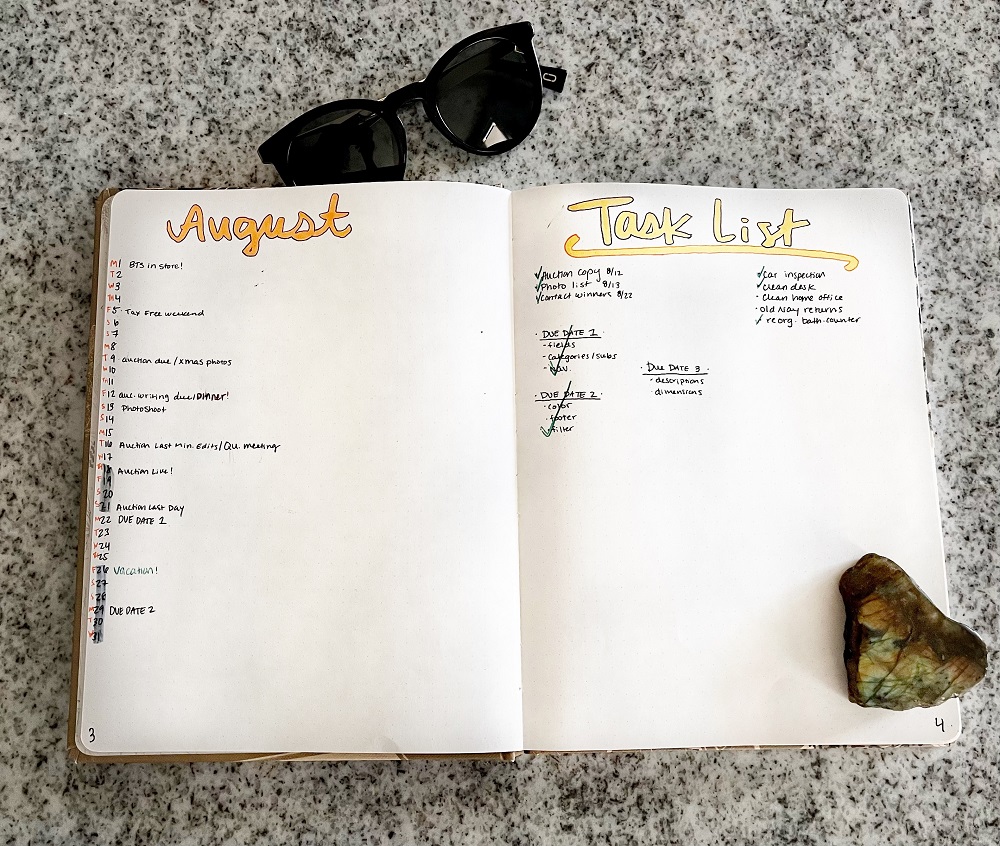 August
M1 BTS in store!
T2
W3
TH4
F5 Tax Free weekend
S6
S7
M8
T9 auction due / xmas photos
W10
TH11
F12 auc. writing due/DINNER!
S13 Photoshoot
S14
M15
T16 Auction Last Min. Edits/Qu. meeting
W17
TH18 Auction Live!
F19
S20
S21 Auction Last Day
M22 DUE DATE 1
T23
W24
TH25
F26 Vacation!
S27
S28
M29 DUE DATE 2
T30
W31
3
Task List
Auction copy 8/12
Photo list 8/13
Contact winners 8/22
· DUE DATE 1 ·
- fields
- categories/subs
- Nav.
· DUE DATE 2 ·
· color
· footer
· filter
· DUE DATE 3 ·
· descriptions
· dimensions
car inspection
clean desk
· Clean home office
· old Navy returns
reorg. bath counter
4